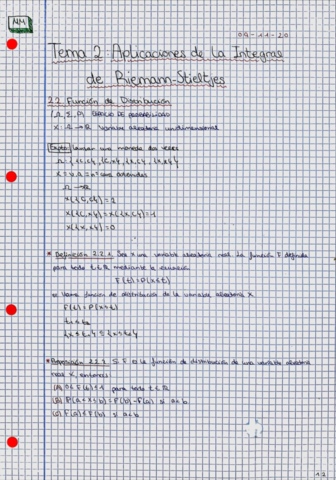 MM
09-11-20
Tema 2: Aplicaciones de la Integral
de Riemann-Stieltjes
2.2. Función de Distribución
(Ω, Σ, P) ESPACIO DE PROBABILIDAD
X: Ω → ℝ Variable aleatoria unidimensional
Ejemplo: lanzar una moneda dos veces
X = v.a. = nº
Ω → ℝ
X({C,C}) = 2
X({C,X}) = X({X,C}) = 1
X({X,X}) = 0
* Definición 2.2.1. Sea X una variable aleatoria real. La función F definida
para todo t ∈ ℝ mediante la ecuación
F(t) = P(X ≤ t)
se llama función de distribución de la variable aleatoria X.
F(t) = P(X ≤ t)
* Proposición 2.2.2. Si F es la función de distribución de una variable aleatoria
real X, entonces
(A) 0 ≤ F(t) ≤ 1 para todo t ∈ ℝ
(B) P(a < X ≤ b) = F(b) - F(a) si a < b
(C) F(a) ≤ F(b) si a < b